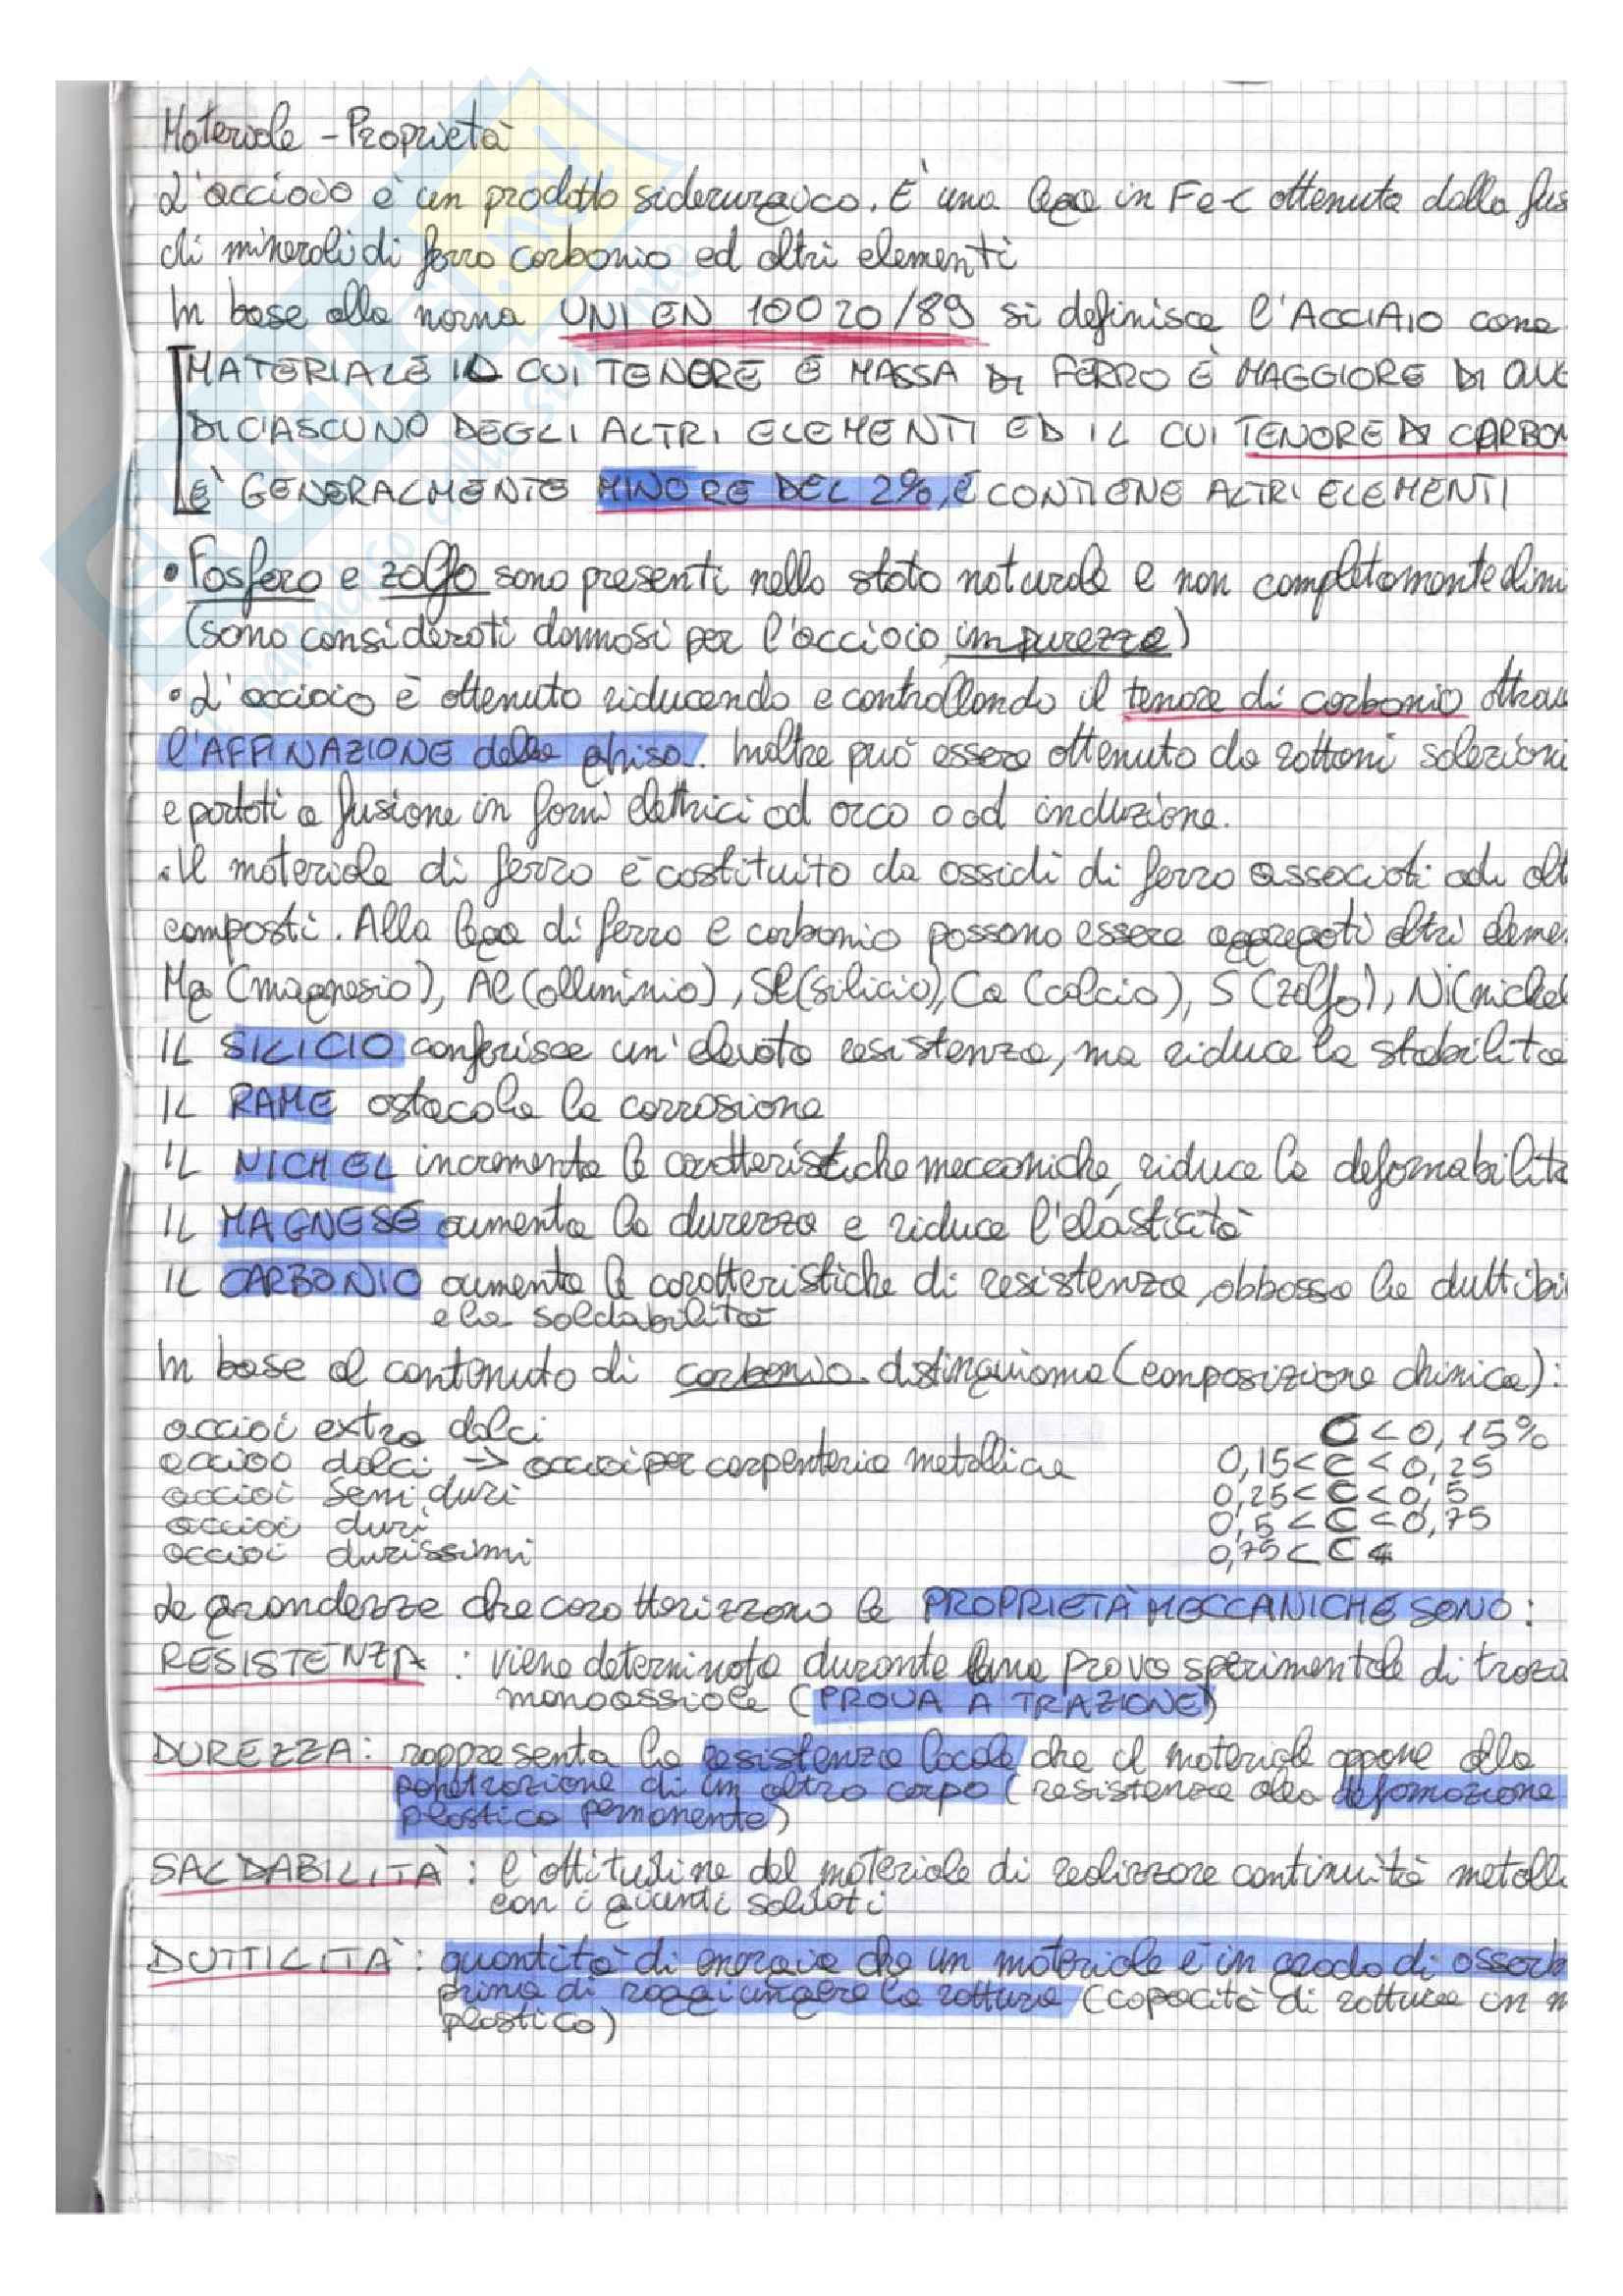 Materiale - Proprietà
L'acciaio è un prodotto siderurgico. E' una lega in Fe-C ottenuta dalla fus
di minerali di ferro carbonio ed altri elementi
In base alla norma UNI EN 10020/89 si definisce l'ACCIAIO come
MATERIALE IL CUI TENORE E MASSA DI FERRO È MAGGIORE DI QUE
DI CIASCUNO DEGLI ALTRI ELEMENTI ED IL CUI TENORE DI CARBON
E' GENERALMENTE MINORE DEL 2%, E CONTIENE ALTRI ELEMENTI
• Fosforo e zolfo sono presenti nello stato naturale e non completamente elimi
(sono considerati dannosi per l'acciaio impurezze)
• L'acciaio è ottenuto riducendo e controllando il tenore di carbonio attrav
l'AFFINAZIONE della ghisa. Inoltre può essere ottenuto da rottami selezioni
e portati a fusione in forni elettrici ad arco o ad induzione.
• Il materiale di ferro è costituito da ossidi di ferro associati ad alt
composti. Alla lega di ferro e carbonio possono essere aggregati altri eleme
Mg (magnesio), Al (alluminio), Si (silicio), Ca (calcio), S (zolfo), Ni (nichel
IL SILICIO conferisce un'elevata resistenza, ma riduce la stabilità
IL RAME ostacola la corrosione
IL NICHEL incrementa le caratteristiche meccaniche, riduce la deformabilità
IL MAGNESE aumenta la durezza e riduce l'elasticità
IL CARBONIO aumenta le caratteristiche di resistenza, abbassa la duttibi
e la saldabilità
In base al contenuto di carbonio distinguiamo (composizione chimica):
acciai extra dolci C < 0,15%
acciao dolci → acciai per carpenteria metallica 0,15 < C < 0,25
acciai semi duri 0,25 < C < 0,5
acciai duri 0,5 < C < 0,75
acciai durissimi 0,75 < C
Le grandezze che caratterizzano le PROPRIETÀ MECCANICHE SONO:
RESISTENZA : viene determinata durante una prova sperimentale di traza
monoassiale (PROVA A TRAZIONE)
DUREZZA: rappresenta la resistenza locale che il materiale oppone alla
penetrazione di un altro corpo (resistenza alla deformazione
plastica permanente)
SALDABILITÀ : l'attitudine del materiale di realizzare continuità metalli
con i giunti saldati
DUTTILITÀ : quantità di energia che un materiale è in grado di assorb
prima di raggiungere la rottura (capacità di rottura in m
plastico)